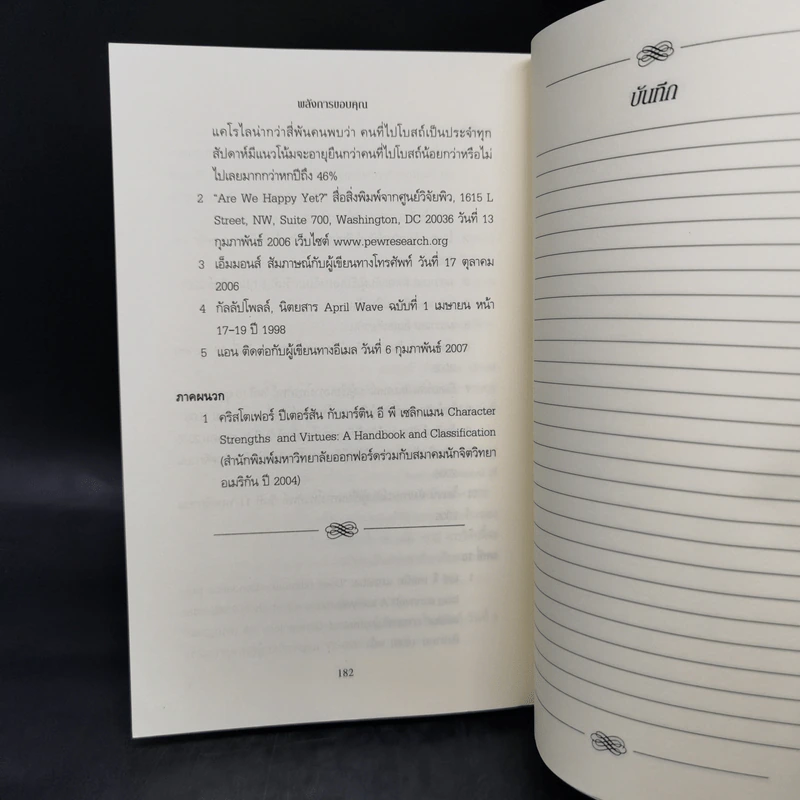 พลังการขอบคุณ
แคโรไลน่ากว่าสี่พันคนพบว่า คนที่ไปโบสถ์เป็นประจำทุก
สัปดาห์มีแนวโน้มจะอายุยืนกว่าคนที่ไปโบสถ์น้อยกว่าหรือไม่
ไปเลยมากกว่าหกปีถึง 46%
2 "Are We Happy Yet?" สื่อสิ่งพิมพ์จากศูนย์วิจัยพิว, 1615 L
Street, NW, Suite 700, Washington, DC 20036 วันที่ 13
กุมภาพันธ์ 2006 เว็บไซต์ www.pewresearch.org
3 เอ็มมอนส์ สัมภาษณ์กับผู้เขียนทางโทรศัพท์ วันที่ 17 ตุลาคม
2006
4 กัลลัปโพลล์, นิตยสาร April Wave ฉบับที่ 1 เมษายน หน้า
17-19 ปี 1998
5 แอน ติดต่อกับผู้เขียนทางอีเมล วันที่ 6 กุมภาพันธ์ 2007
ภาคผนวก
1 คริสโตเฟอร์ ปีเตอร์สัน กับมาร์ติน อี พี เซลิกแมน Character
Strengths and Virtues: A Handbook and Classification
(สำนักพิมพ์มหาวิทยาลัยออกฟอร์ดร่วมกับสมาคมนักจิตวิทยา
อเมริกัน ปี 2004)
182
บันทึก